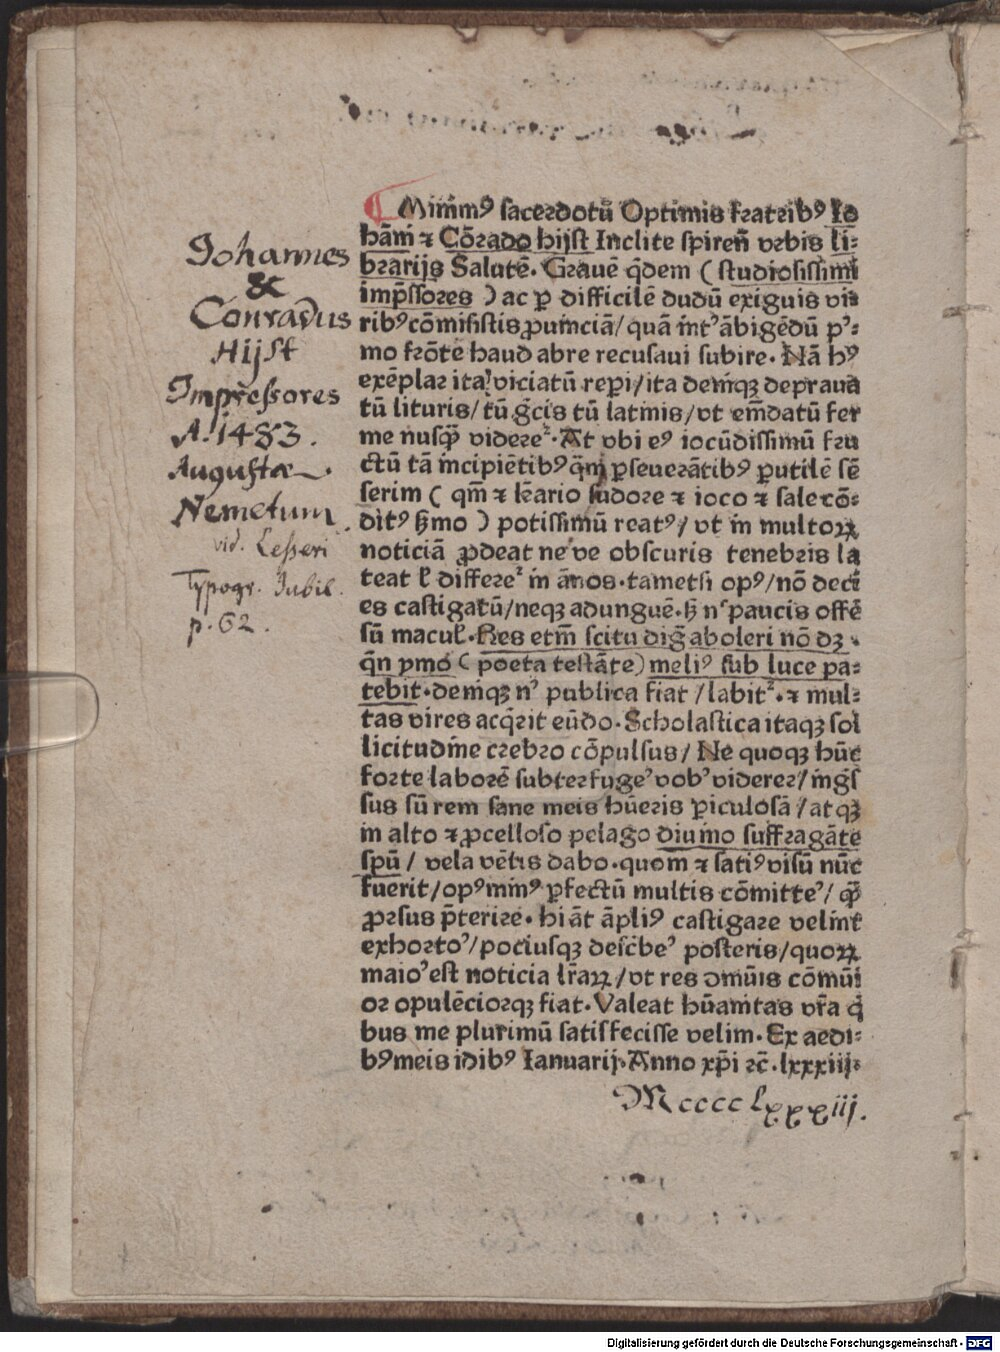 Johannes
&
Conradus
Hijst
Impressores
A. 1483.
Augustae
Nemetum.
vid. Lesseri
Typogr. Iubil.
p. 62.
Minimꝰ sacerdotū Optimis fratribꝰ Io
hāni ⁊ Cōrado hijst Inclite spireñ vrbis li⸗
brarijs Salutē. Grauē q̇dem ( studiosissimi
imp̄ssores ) ac ꝑ difficilē dudū exiguis vi⸗
ribꝰ cōmisistis ꝓuinciā / quā int' ābigēdū p'⸗
mo frōte haud abre recusaui subire. Nā hꝰ
exēplar ita viciatū reꝑi / ita demīqꝫ depraua
tū lituris / tū g̊cis tū latinis / vt emēdatū fer
me nusqꝫ̄ videre². At vbi eꝰ iocūdissimū fru
ctū tā incipiētibꝰ qͣm ꝑseuerātibꝰ ꝑutilē sē
serim ( qm̄ ⁊ lēario sudore ⁊ ioco ⁊ sale cō⸗
ditꝰ ẜmo ) potissimū reatꝰ / vt in multoꝝ
noticiā ꝓdeat ne've obscuris tenebris la
teat ł differe² in ānos. tametsi opꝰ / nō deci
es castigatū / neqꝫ adunguē. ꜩ n' paucis offē
sū macuł. Res etm̄ scitu diḡ aboleri nō dꝫ.
qͥn ymo ( poeta testāte ) meliꝰ sub luce pa⸗
tebit. demīqꝫ n' publica fiat / labit². ⁊ mul⸗
tas vires acq̇rit eūdo. Scholastica itaqꝫ sol
licitudine crebro cōpulsus / Ne quoqꝫ hūc
forte laborē subterfuge' vob' viderer / ing̊s
sus sū rem sane meis hūeris ꝑiculosā / atqꝫ
in alto ⁊ ꝓcelloso pelago diuino suffragāte
spū / vela vētis dabo. quom ⁊ satiꝰ visū nūc
fuerit / opꝰ minꝰ ꝑfectū multis cōmitte' / qꝫ̄
ꝓrsus p̄terire. hi āt āpliꝰ castigare velint
exhorto' / pociusqꝫ desc̄be' posteris / quoꝝ
maio' est noticia łr̄aꝝ / vt res ɔmūis cōmūi
or opulēciorqꝫ fiat. Valeat hūanitas vr̄a q̇
bus me plurimū satisfecisse velim. Ex aedi⸗
bꝰ meis idibꝰ Ianuarij. Anno xp̄i ⁊c̄. lxxxiij.
MccccLxxxiij.
Digitalisierung gefördert durch die Deutsche Forschungsgemeinschaft - DFG